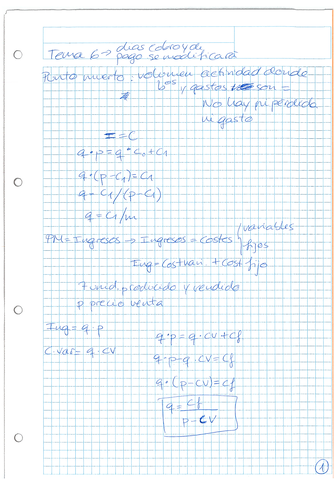 Tema 6 → días cobro y de
pago se modificará
Punto muerto: volumen actividad donde
bºs y gastos son =
No hay ni pérdida
ni gasto
I = C
q·p = q·C₀ + C₁
q·(p-C₁) = C₁
q = C₁/(p-C₁)
q = C₁/m
PM = Ingresos → Ingresos = Costes variables
fijos
Ing = Cost vari. + Cost fijo
unid. producido y vendido
p precio venta
Ing = q·p
C. var = q·CV
q·p = q·CV + Cf
q·p - q·CV = Cf
q·(p-CV) = Cf
q = Cf
p - CV
1